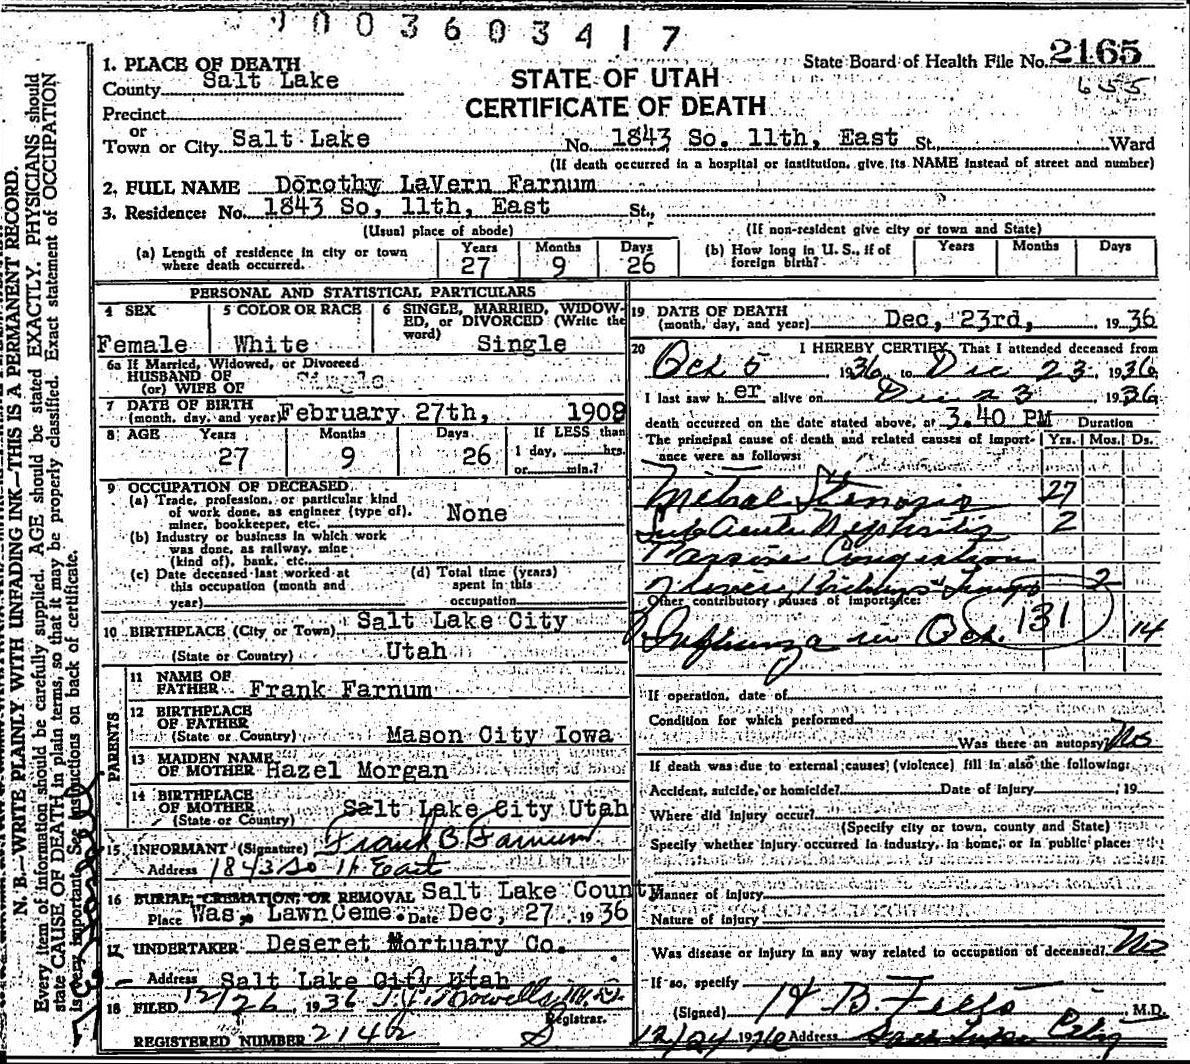 003603417
1. PLACE OF DEATH
State Board of Health File No. 2165
County Salt Lake
STATE OF UTAH
655
Precinct
CERTIFICATE OF DEATH
or
Town or City Salt Lake No. 1843 So. 11th, East St. Ward
(If death occurred in a hospital or institution, give its NAME instead of street and number)
2. FULL NAME Dorothy LaVern Farnum
3. Residence: No. 1843 So, 11th, East St.,
(Usual place of abode) (If non-resident give city or town and State)
(a) Length of residence in city or town where death occurred. Years 27 Months 9 Days 26
(b) How long in U. S., if of foreign birth? Years Months Days
PERSONAL AND STATISTICAL PARTICULARS
4 SEX Female
5 COLOR OR RACE White
6 SINGLE, MARRIED, WIDOWED, or DIVORCED (Write the word) Single
6a If Married, Widowed, or Divorced
HUSBAND OF
(or) WIFE OF Single
7 DATE OF BIRTH
(month, day, and year) February 27th, 1909
8 AGE Years 27 Months 9 Days 26 If LESS than 1 day, hrs. or min.?
9 OCCUPATION OF DECEASED
(a) Trade, profession, or particular kind
of work done, as engineer (type of),
miner, bookkeeper, etc. None
(b) Industry or business in which work
was done, as railway, mine
(kind of), bank, etc.
(c) Date deceased last worked at
this occupation (month and
year)
(d) Total time (years)
spent in this
occupation
10 BIRTHPLACE (City or Town) Salt Lake City
(State or Country) Utah
PARENTS
11 NAME OF
FATHER Frank Farnum
12 BIRTHPLACE
OF FATHER
(State or Country) Mason City Iowa
13 MAIDEN NAME
OF MOTHER Hazel Morgan
14 BIRTHPLACE
OF MOTHER
(State or Country) Salt Lake City Utah
15 INFORMANT (Signature) Frank B. Farnum
Address 1843 So 11 East
16 BURIAL, CREMATION, OR REMOVAL Salt Lake County
Place Was. Lawn Ceme. Date Dec, 27 1936
17 UNDERTAKER Deseret Mortuary Co.
Address Salt Lake City Utah
18 FILED 12/26 1936 M.D.
Registrar.
REGISTERED NUMBER 2142
19 DATE OF DEATH
(month, day, and year) Dec, 23rd, 1936
20 I HEREBY CERTIFY, That I attended deceased from
Oct 5 1936 to Dec 23, 1936
I last saw her alive on Dec 23 1936
death occurred on the date stated above, at 3.40 PM
Duration
The principal cause of death and related causes of importance were as follows: Yrs. Mos. Ds.
Mitral Stenosis 27
Sub Acute Nephritis 2
Passive Congestion
Liver, Kidneys & Lungs 2
Other contributory causes of importance:
131
Influenza in Oct. 14
If operation, date of
Condition for which performed
Was there an autopsy? No
If death was due to external causes (violence) fill in also the following:
Accident, suicide, or homicide? Date of injury , 19
Where did injury occur?
(Specify city or town, county and State)
Specify whether injury occurred in industry, in home, or in public place:
Manner of injury
Nature of injury
Was disease or injury in any way related to occupation of deceased? No
If so, specify
(Signed) M.D.
12/24 1936 Address Salt Lake City
N. B.—WRITE PLAINLY WITH UNFADING INK—THIS IS A PERMANENT RECORD.
Every item of information should be carefully supplied. AGE should be stated EXACTLY. PHYSICIANS should
state CAUSE OF DEATH in plain terms, so that it may be properly classified. Exact statement of OCCUPATION
is very important. See instructions on back of certificate.